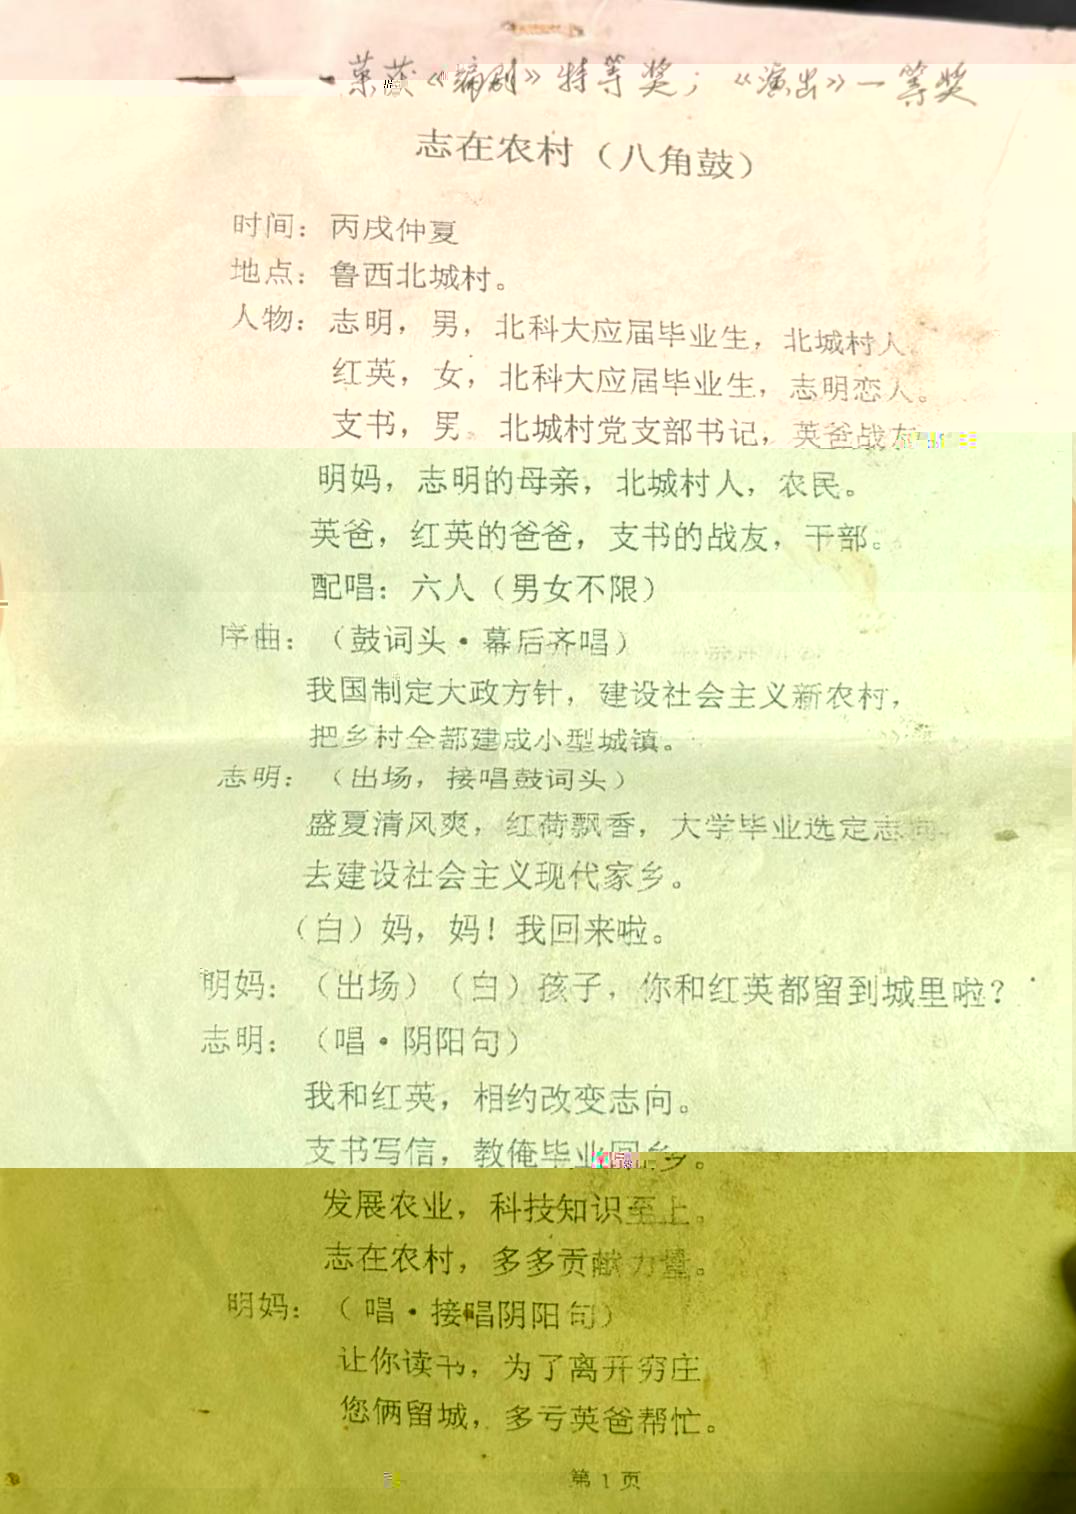 荣获《编剧》特等奖；《演出》一等奖
志在农村（八角鼓）
时间：丙戌仲夏
地点：鲁西北城村。
人物：志明，男，北科大应届毕业生，北城村人。
红英，女，北科大应届毕业生，志明恋人。
支书，男。北城村党支部书记，英爸战友
明妈，志明的母亲，北城村人，农民。
英爸，红英的爸爸，支书的战友，干部。
配唱：六人（男女不限）
序曲：（鼓词头·幕后齐唱）
我国制定大政方针，建设社会主义新农村，
把乡村全都建成小型城镇。
志明：（出场，接唱鼓词头）
盛夏清风爽，红荷飘香，大学毕业选定志向
去建设社会主义现代家乡。
（白）妈，妈！我回来啦。
明妈：（出场）（白）孩子，你和红英都留到城里啦？
志明：（唱·阴阳句）
我和红英，相约改变志向。
支书写信，教俺毕业回乡。
发展农业，科技知识至上。
志在农村，多多贡献力量。
明妈：（唱·接唱阴阳句）
让你读书，为了离开穷庄
您俩留城，多亏英爸帮忙。
第1页